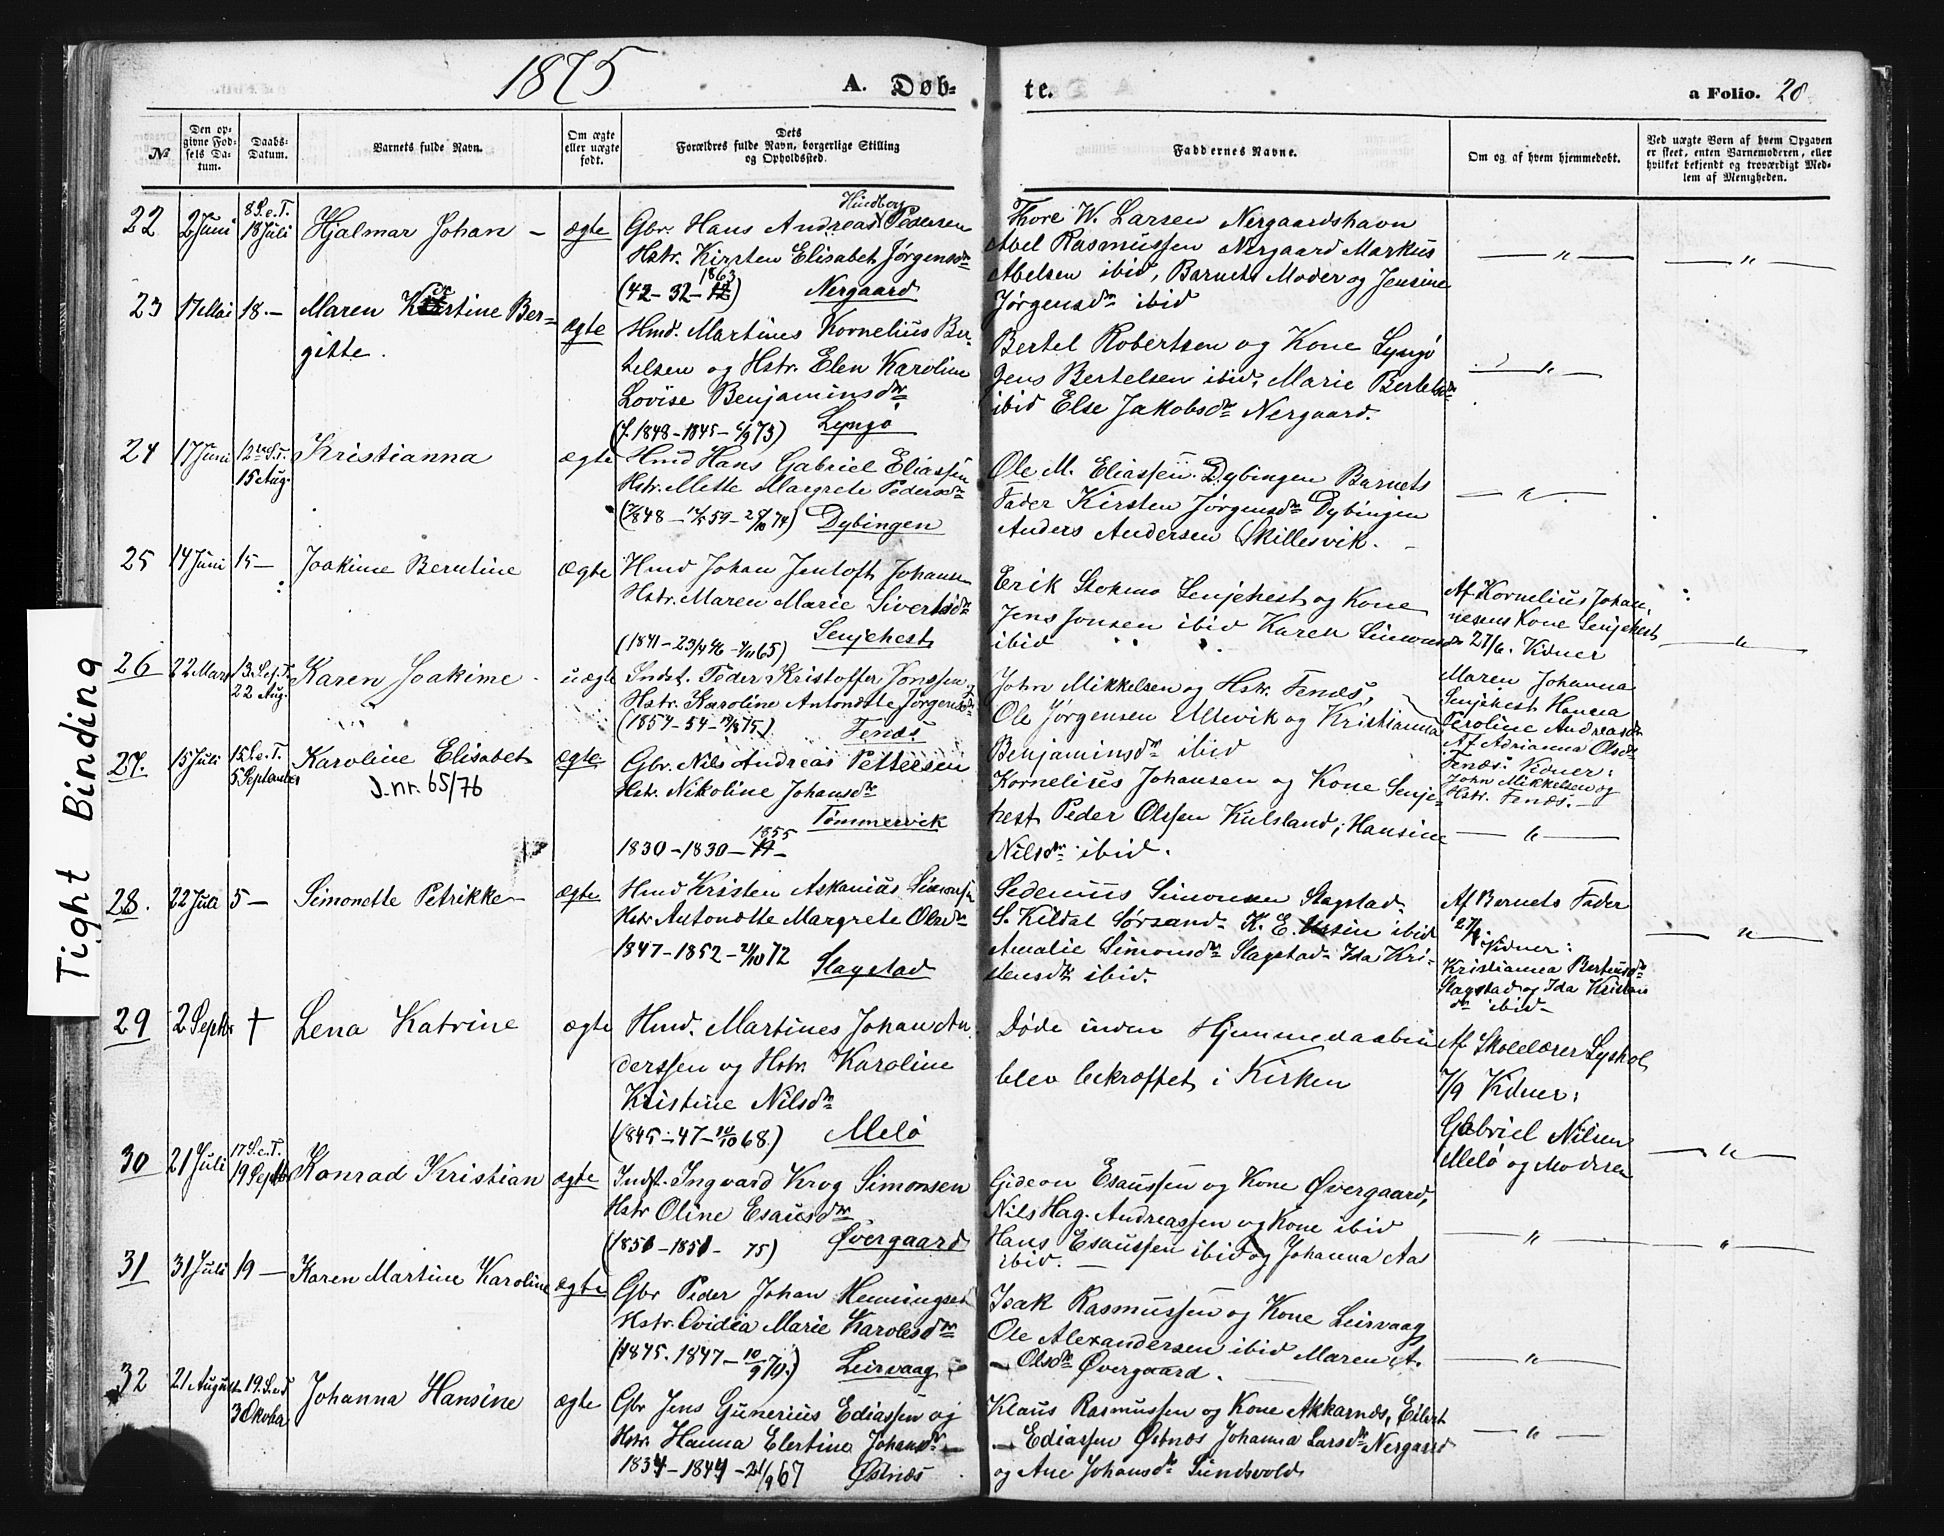 1875
A. Døb-
te.
a Folio. 28
№
Den op-
givne Fød-
sels Da-
tum.
Daabs-
Datum.
Barnets fulde Navn.
Om ægte
eller uægte
født.
Dets
Forældres fulde Navn, borgerlige Stilling
og Opholdssted.
Faddernes Navne.
Om og af hvem hjemmedøbt.
Ved uægte Børn af hvem Opgaven
er skeet, enten Barnemoderen, eller
hvilket bekjendt og troværdigt Med-
lem af Menigheden.
22
2 Juni
8 S. e. T.
18 Juli
Hjalmar Johan –
ægte
Gbr. Hans Andreas Pedersen
Hstr. Kirsten Elisabet Jørgensdr
1863
(42 – 32 – ) Nergaard
Thore W. Larsen Nergaardshavn
Abel Rasmussen Nergaard Markus
Abelsen ibid, Barnets Moder og Jensine
Jørgensdr ibid
— " —
— " —
23
17 Mai
18. –
Maren Kirstine Ber-
gitte.
ægte
Hmd. Martines Kornelius Ber-
telsen og Hstr. Elen Karoline
Lovise Benjaminsdr
(f. 1848 – 1845 – 6/9 73) Lyngø
Bertel Robertsen og Kone Lyngø
Jens Bertelsen ibid, Marie Bertelsdr
ibid Else Jakobsdr Nergaard.
— " —
24
17 Juni
12te S. T.
15 Aug.
Kristianna
ægte
Hmd Hans Gabriel Eliassen
Hstr. Mette Margrete Pedersdr
Dybingen
Ole M. Eliassen Dybingen Barnets
Fader Kirsten Jørgensdr Dybingen
Anders Andersen Skillesvik. –
— " —
25
14 Juni
15 –
Joakime Berntine
ægte
Hmd Johan Jentoft Johansen
Hstr. Maren Marie Sivertsdr
Senjehest
Erik Stokmo Senjehest og Kone
Jens Jonsen ibid Karen Simonsdr
ibid
Af Kornelius Johan-
nesens Kone Senjehest
27/6. Vidner
Maren Johanna
Senjehest
— " —
26
22 Mars
13. S. e. T.
22 Aug.
Karen Joakime –
uægte
Indst. Peder Kristoffer Jonssen og
Hstr. Karoline Antonette Jørgensdr
Fenæs
John Mikkelsen og Hstr. Fenæs,
Ole Jørgensen Ulevik og Kristianna
Benjaminsdr ibid
Af Adrianna Olsdr
Fenæs. Vidner:
John Mikkelsen og
Hstr. Fenæs. –
27.
15 Juli
15 S. e. T.
5 September
Karoline Elisabet
J. nr. 65/76
ægte
Gbr. Nils Andreas Pettersen
Hstr. Nikoline Johansdr
Tømmervik
1855
1830 – 1830 –
Kornelius Johansen og Kone Senje-
hest Peder Olssen Kulsland, Hansine
Nilsdr ibid.
— " —
28.
22 Juli
5 –
Simonette Petrikke –
ægte
Hmd Kristen Askanius Simonsen
Hstr Antonette Margrete Olsdr
1847 – 1852 – 21/10 72
Slagstad
Sedenius Simonsen Slagstad.
S. Kildal Sørsand. K. E. ibid
Amalie Simonsdr Slagstad. Ida Kri-
stensdr ibid.
Af Barnets Fader
Vidner:
Kristianna Berntsdr
Slagstad og Ida Kristens
dr ibid –
— " —
29
2 Septbr
†
Lena Katrine
ægte
Hmd. Martines Johan An-
derssen og Hstr Karoline
Kristine Nilsdr
(1845 – 47 – 10/10 68.) Melø
Døde inden Hjemmedaaben
blev bekræftet i Kirken
Af Skolelærer Lyshol
7/9 Vidner:
Gabriel Nilsen
Melø og Moderen
— " —
30
21 Juli
17 S. e. T.
19 Septbr
Konrad Kristian
ægte
Indst. Ingvard Krog Simonsen
Hstr Oline Esausdr
(1851 – 1851 – 75) Øvergaard
Gideon Esaussen og Kone Øvergaard,
Nils Hag. Andreassen og Kone ibid
Hans Esaussen ibid og Johanna Aas
ibid. –
— " —
— " —
31
31 Juli
19 –
Karen Martine Karoline
ægte
Gbr Peder Johan Henningsen
Hstr. Ovidia Marie Karolesdr
(1845. 1847 – 10/9 70.) Leirvaag
Isak Rasmussen og Kone Leirvaag
Ole Alexandersen ibid Maren A.
– Olsdr Øvergaard. –
— " —
32
21 August
19. S.
3 Oktober
Johanna Hansine
ægte
Gbr Jens Gunerius Ediassen og
Hstr. Hanna Elertine Johansdr –
1834 – 1844 – 21/9 67 Østnæs
Klaus Rasmussen og Kone Akkarnæs, Eilert
– Ediassen Østnæs Johanna Larsdr Nergaard
og Ane Johansdr Sundsvold
— " —
Tight Binding